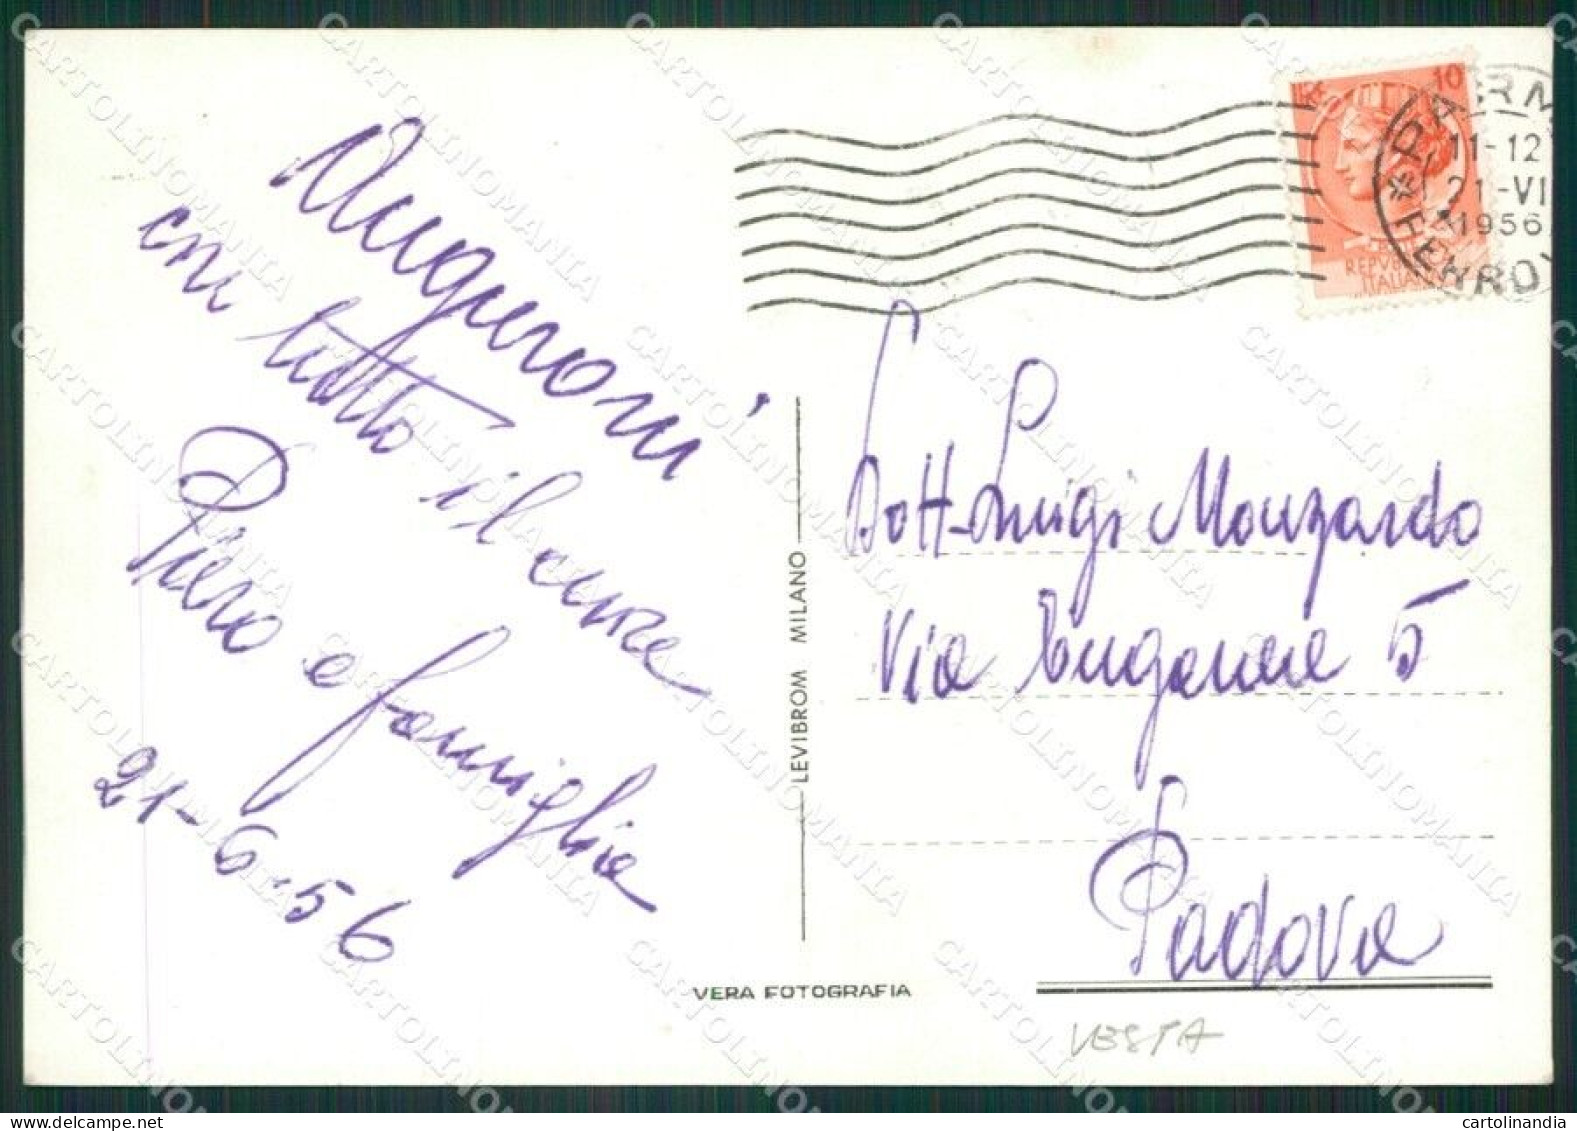 Auguroni
con tutto il cuore
Piero e famiglia
21-6-56
LEVIBROM MILANO
VERA FOTOGRAFIA
10
REPVBBLICA
ITALIANA
PARMA
11-12
21-VI
1956
FERROV
Dott. Luigi Monzardo
Via Euganea 5
Padova
VESPA
CARTOLINOMANIA
cartolinandia